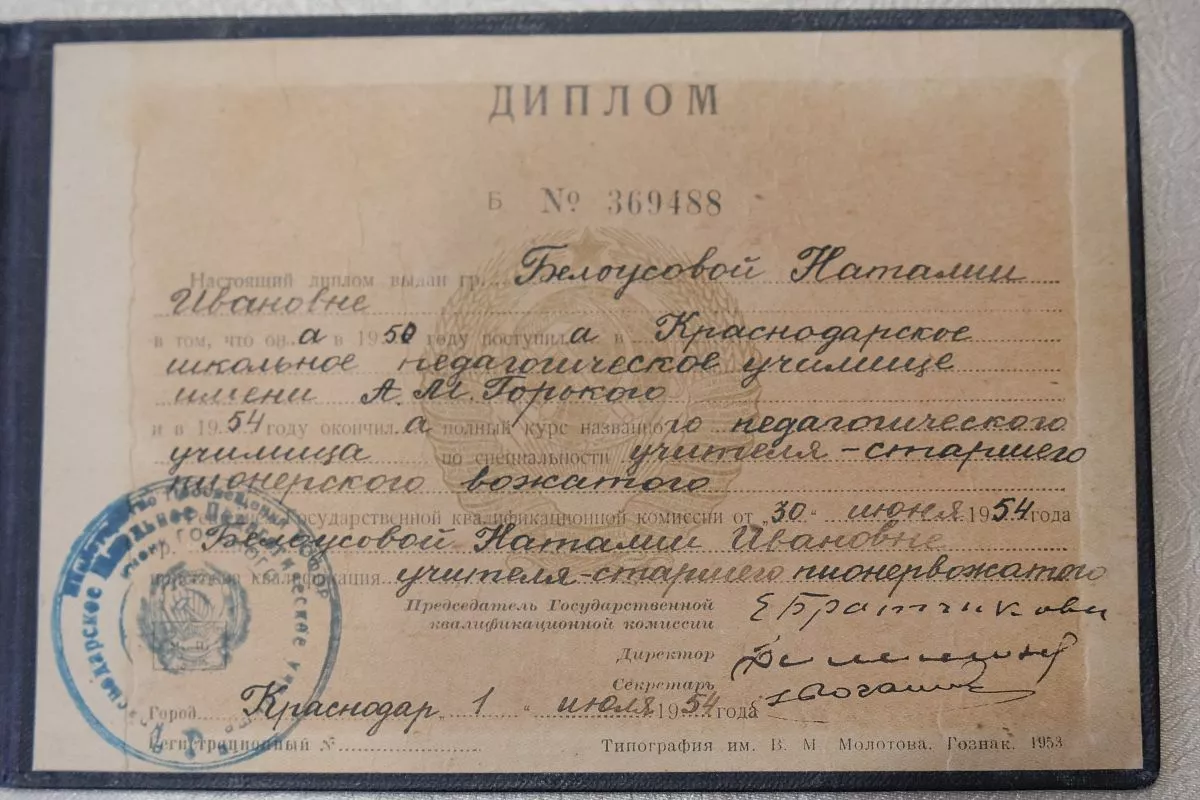 ДИПЛОМ
Б № 369488
Настоящий диплом выдан гр. Белоусовой Наталии
Ивановне
в том, что она в 1950 году поступила в Краснодарское
школьное педагогическое училище
имени А.М. Горького
и в 1954 году окончила полный курс названного педагогического
училища по специальности учителя-старшего
пионерского вожатого
Государственной квалификационной комиссии от "30" июня 1954 года
гр. Белоусовой Наталии Ивановне
квалификация учителя-старшего пионервожатого
Председатель Государственной
квалификационной комиссии
Директор
Секретарь
Город Краснодар „1“ июля 1954 года
Регистрационный №
Типография им. В. М. Молотова. Гознак. 1953